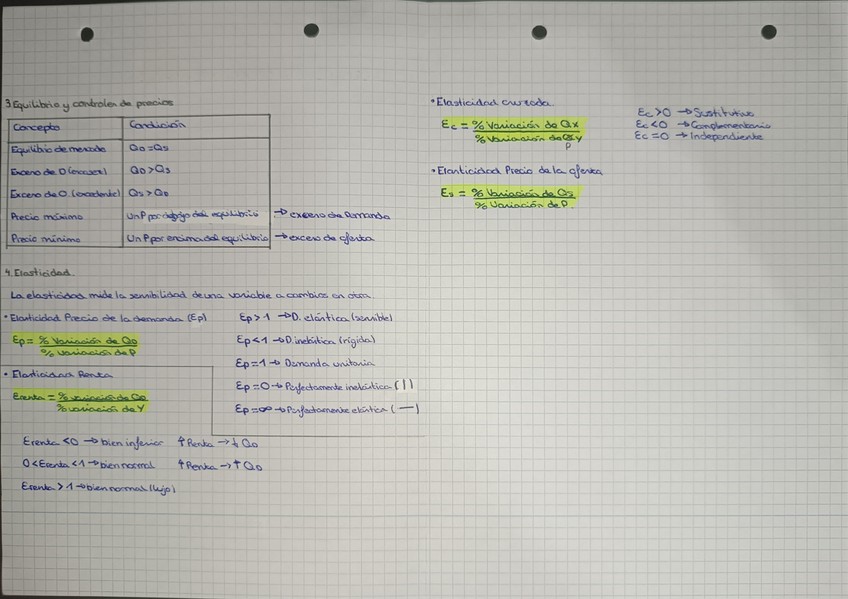 3. Equilibrio y controles de precios
Concepto Condición
Equilibrio de mercado QD = QS
Exceso de D (escasez) QD > QS
Exceso de O (excedente) QS > QD
Precio máximo Un P por debajo del equilibrio → exceso de Demanda
Precio mínimo Un P por encima del equilibrio → exceso de oferta
4. Elasticidad.
La elasticidad mide la sensibilidad de una variable a cambios en otra.
• Elasticidad Precio de la demanda (Ep)
Ep = % Variación de QD
% Variación de P
Ep > 1 → D. elástica (sensible)
Ep < 1 → D. inelástica (rígida)
Ep = 1 → Demanda unitaria
Ep = 0 → Perfectamente inelástica ( | )
Ep = ∞ → Perfectamente elástica ( — )
• Elasticidad Renta
Erenta = % variación de QD
% variación de Y
Erenta < 0 → bien inferior ↑ Renta → ↓ QD
0 < Erenta < 1 → bien normal ↑ Renta → ↑ QD
Erenta > 1 → bien normal (lujo)
• Elasticidad cruzada
Ec = % Variación de Qx
% Variación de Py
Ec > 0 → Sustitutivo
Ec < 0 → Complementario
Ec = 0 → Independiente
• Elasticidad Precio de la oferta
Es = % Variación de Qs
% Variación de P